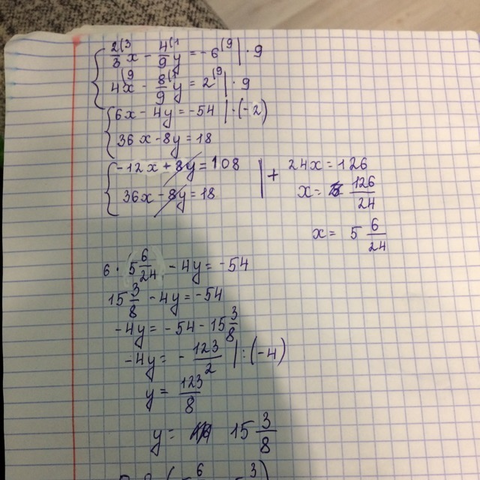 2/3 (3 x - 4/9 (1 y = -6 (9 | · 9
4 (9 x - 8/9 (1 y = 2 (9 | · 9
6x - 4y = -54 | · (-2)
36x - 8y = 18
-12x + 8y = 108
36x - 8y = 18
| +
24x = 126
x = 126/24
x = 5 6/24
6 · 5 6/24 - 4y = -54
15 3/8 - 4y = -54
-4y = -54 - 15 3/8
-4y = - 123/2 | : (-4)
y = 123/8
y = 15 3/8